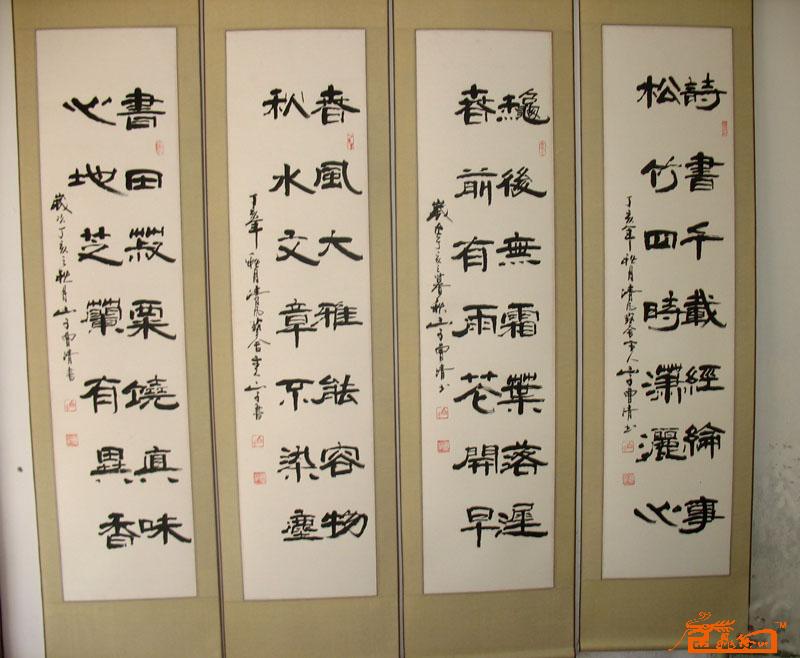 詩書千載經綸事
松竹四時瀟灑心
丁亥年秋月清凡舍主人山子曹清书
龝後無霜葉落遲
春前有雨花開早
歲在丁亥之暮秋山子曹清书
春風大雅能容物
秋水文章不染塵
丁亥年秋月清凡舍主人山子書
書田菽粟饒真味
心地芝蘭有異香
歲次丁亥之秋月山子曹清書